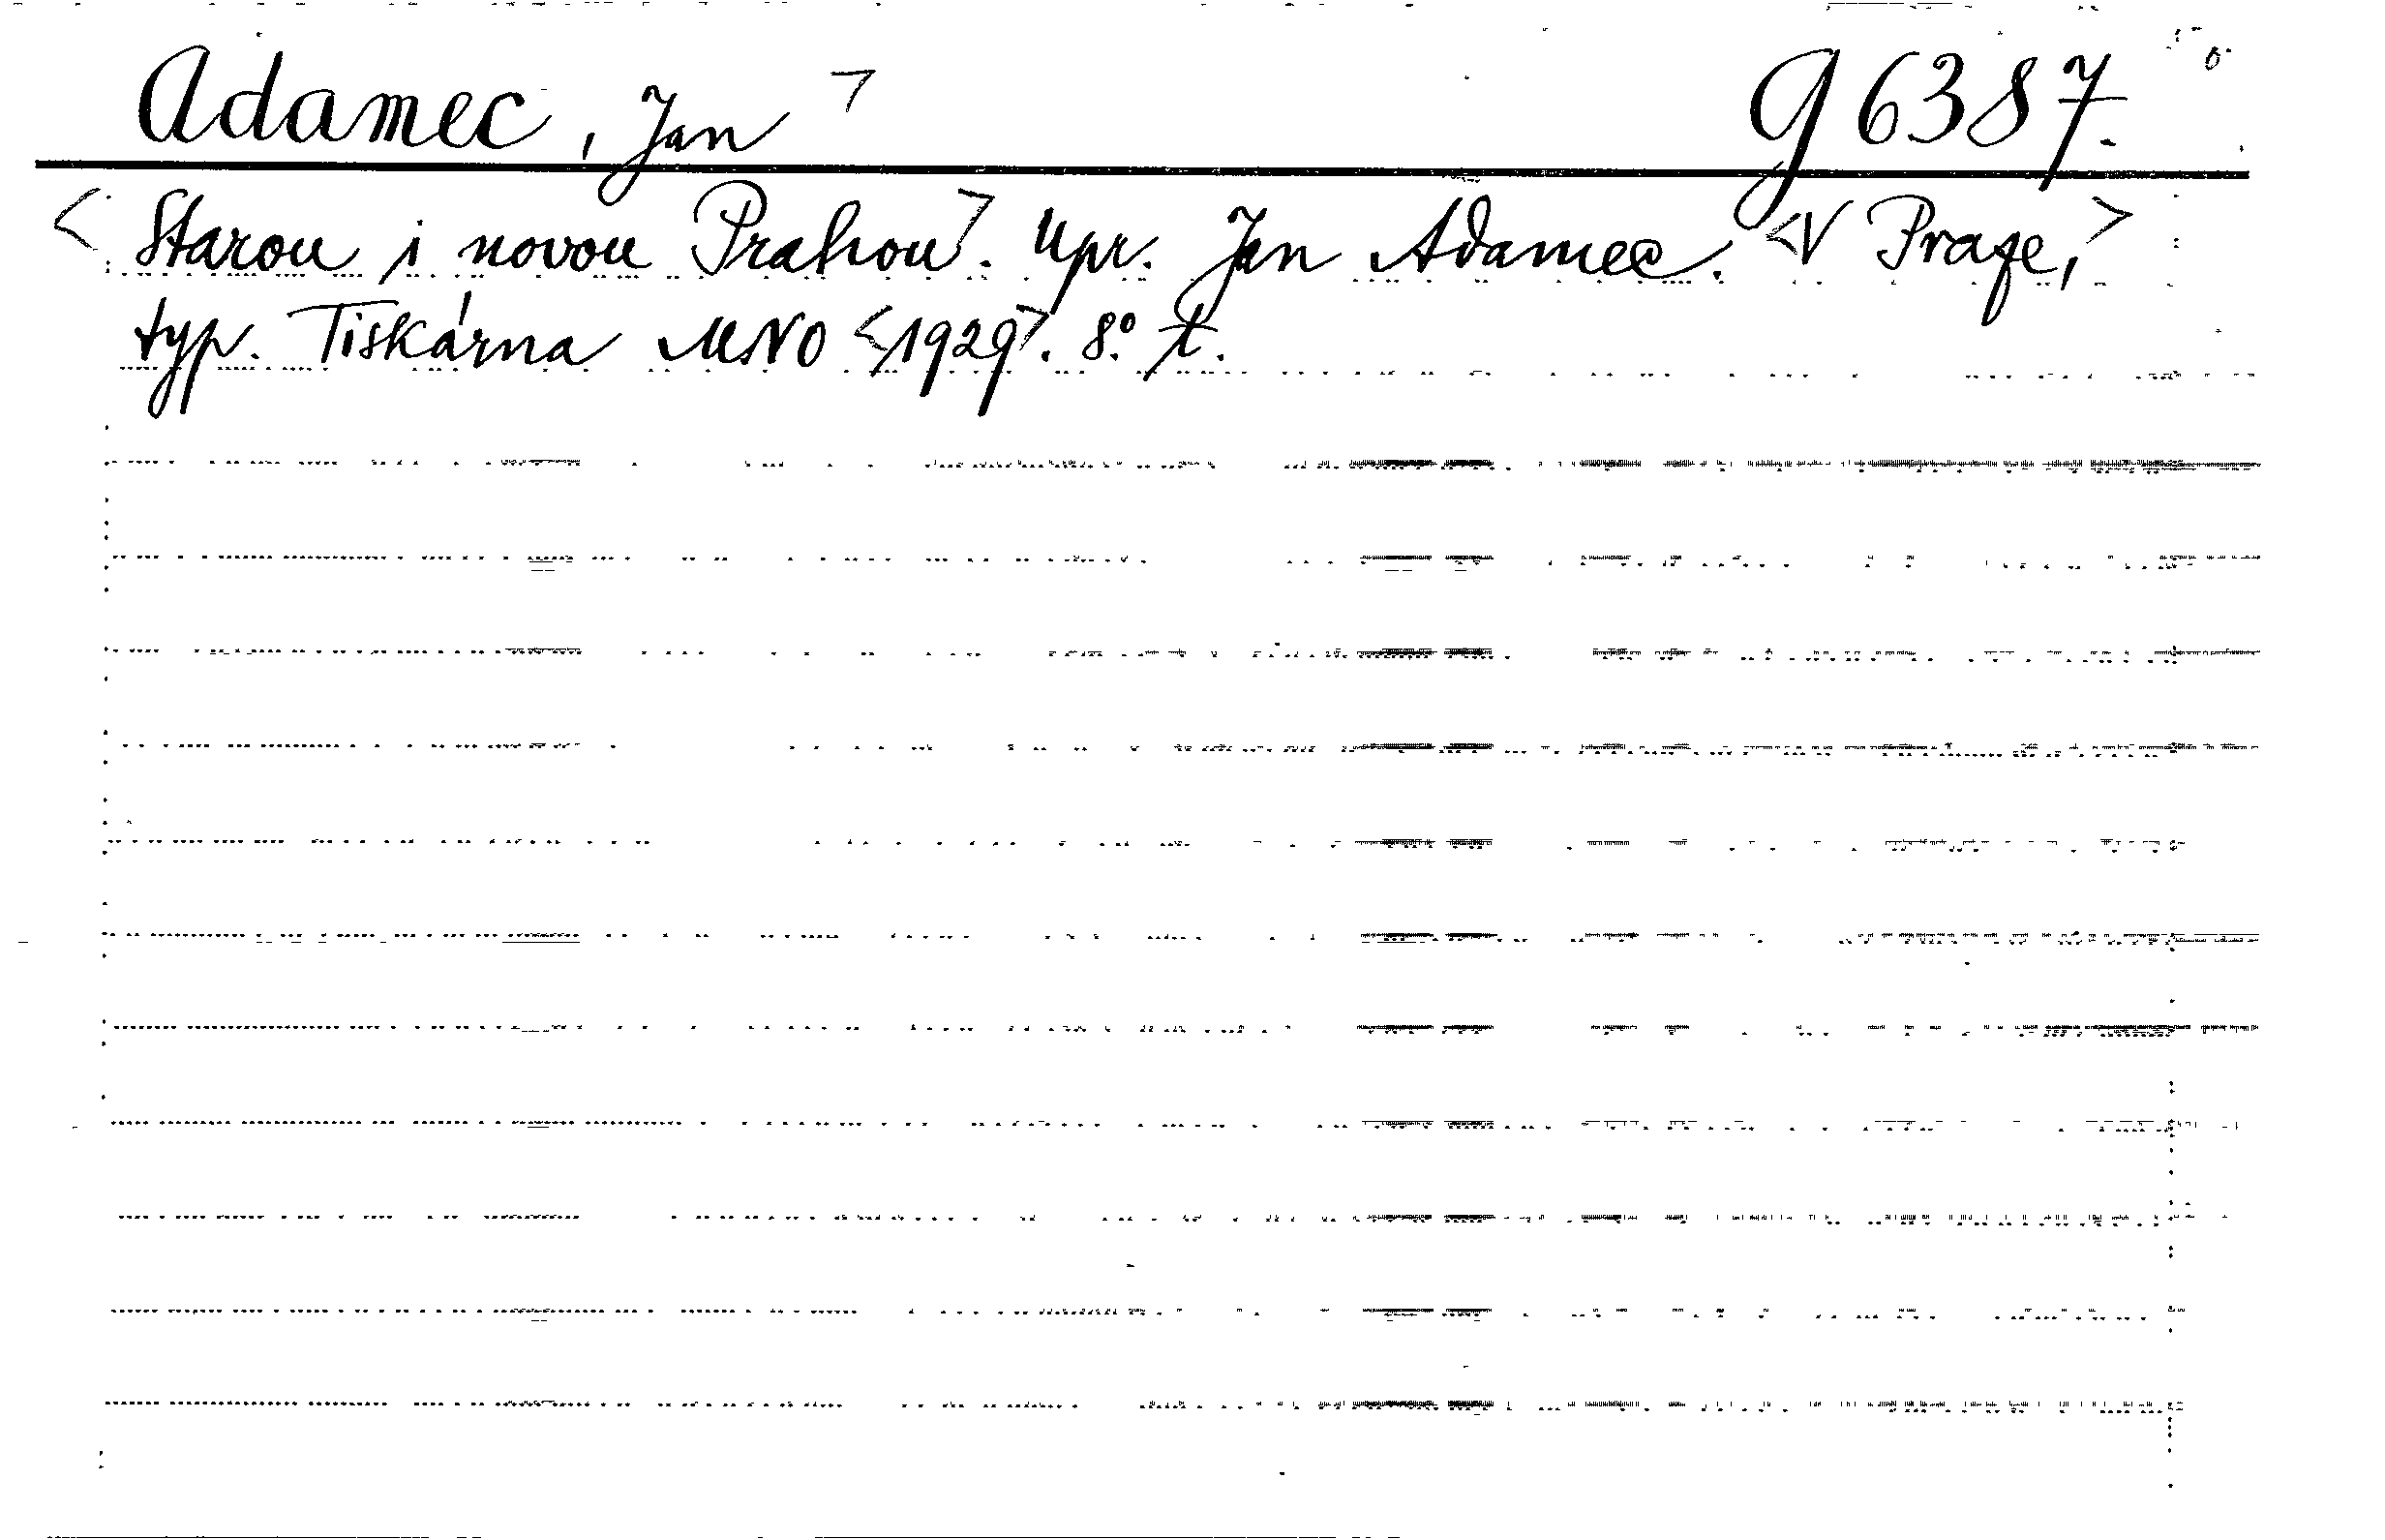 Adamec, Jan > g 6387.
<Starou i novou Prahou>. Upr. Jan Adamec. <V Praze,>
typ. Tiskárna MNO <1929>. 8°. t.